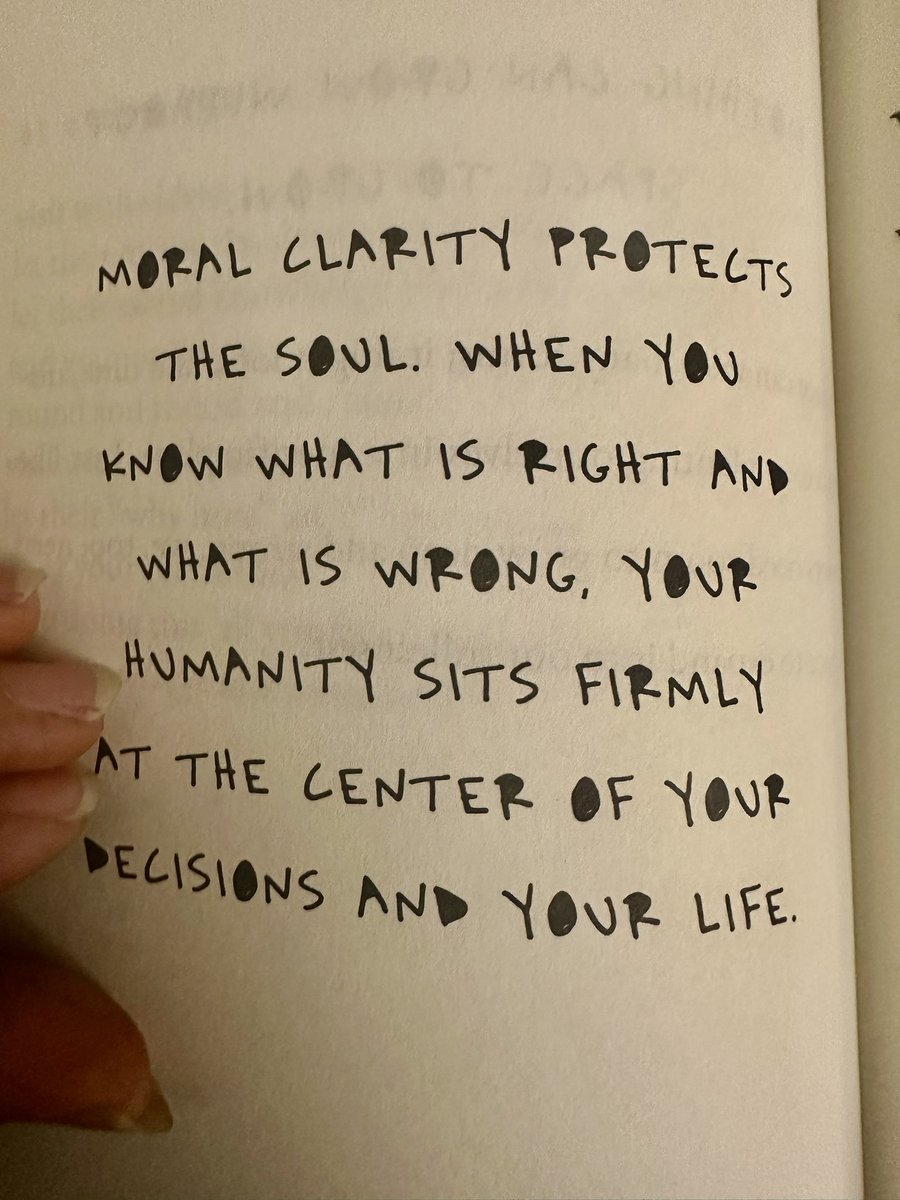 MORAL CLARITY PROTECTS
THE SOUL. WHEN YOU
KNOW WHAT IS RIGHT AND
WHAT IS WRONG, YOUR
HUMANITY SITS FIRMLY
AT THE CENTER OF YOUR
DECISIONS AND YOUR LIFE.